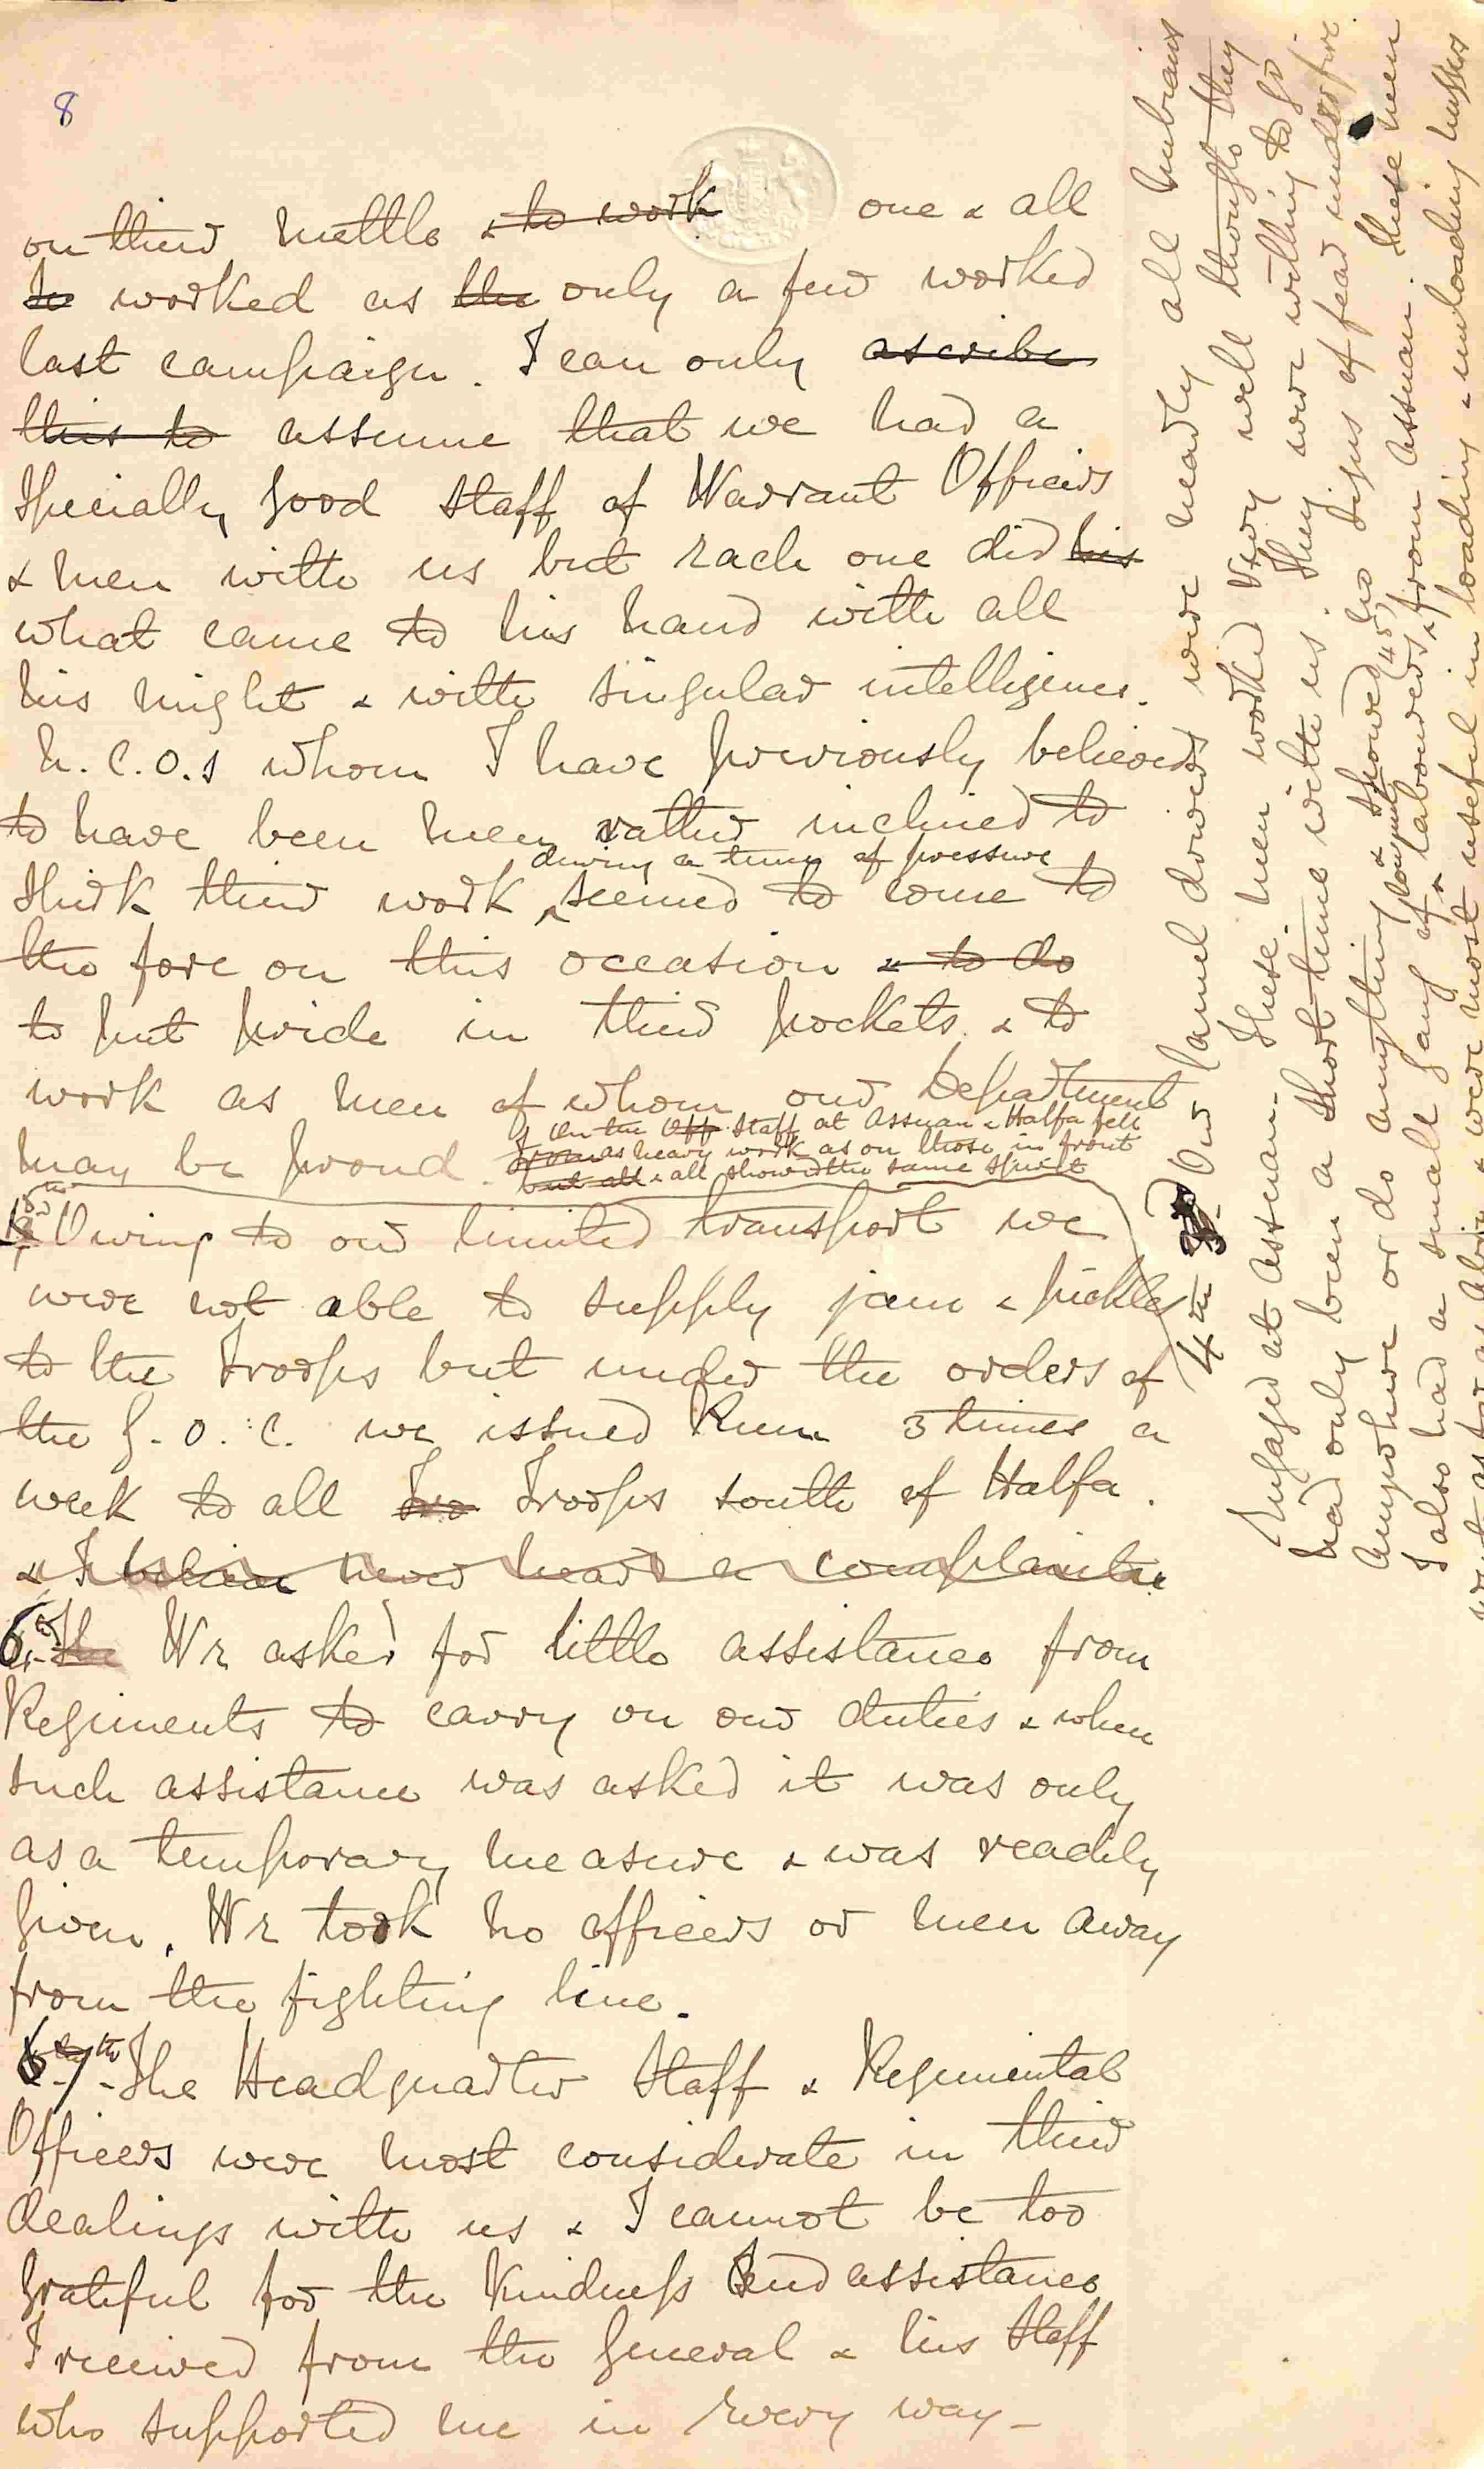 8
on their mettle & to work one & all
to worked as the only a few worked
last campaign. I can only ascribe
this to assume that we had a
specially good staff of Warrant Officers
& men with us but each one did his
what came to his hand with all
his might & with singular intelligence.
N.C.O.s whom I have previously believed
to have been men rather inclined to
shirk their work during a time of pressure seemed to come to
the fore on this occasion & to do
to put pride in their pockets & to
work as men of whom our Department
may be proud.
On the Off Staff at Assuan & Halfa fell
as heavy work as on those in front
but all & all showed the same spirit
Owing to our limited transport we
were not able to supply jam & pickles
to the Troops but under the orders of
the G.O.C. we issued Rum 3 times a
week to all Tro Troops south of Halfa.
& I believe never heard a complaint
6th. The We asked for little assistance from
Regiments to carry on our duties & when
such assistance was asked it was only
as a temporary measure & was readily
given. We took no officers or men away
from the fighting line.
7th. The Headquarter Staff & Regimental
Officers were most considerate in their
dealings with us & I cannot be too
grateful for the kindness and assistance
I received from the General & his Staff
who supported me in every way_
4th Our Camel drivers were nearly all Nubians
Engaged at Assuan. These men worked very well though they
had only been a short time with us. They were willing to go
anywhere or do anything & showed no signs of fear under fire.
I also had a small gang of (45) labourers from Assuan. These men
went as far as & were most useful in loading & unloading nuggars